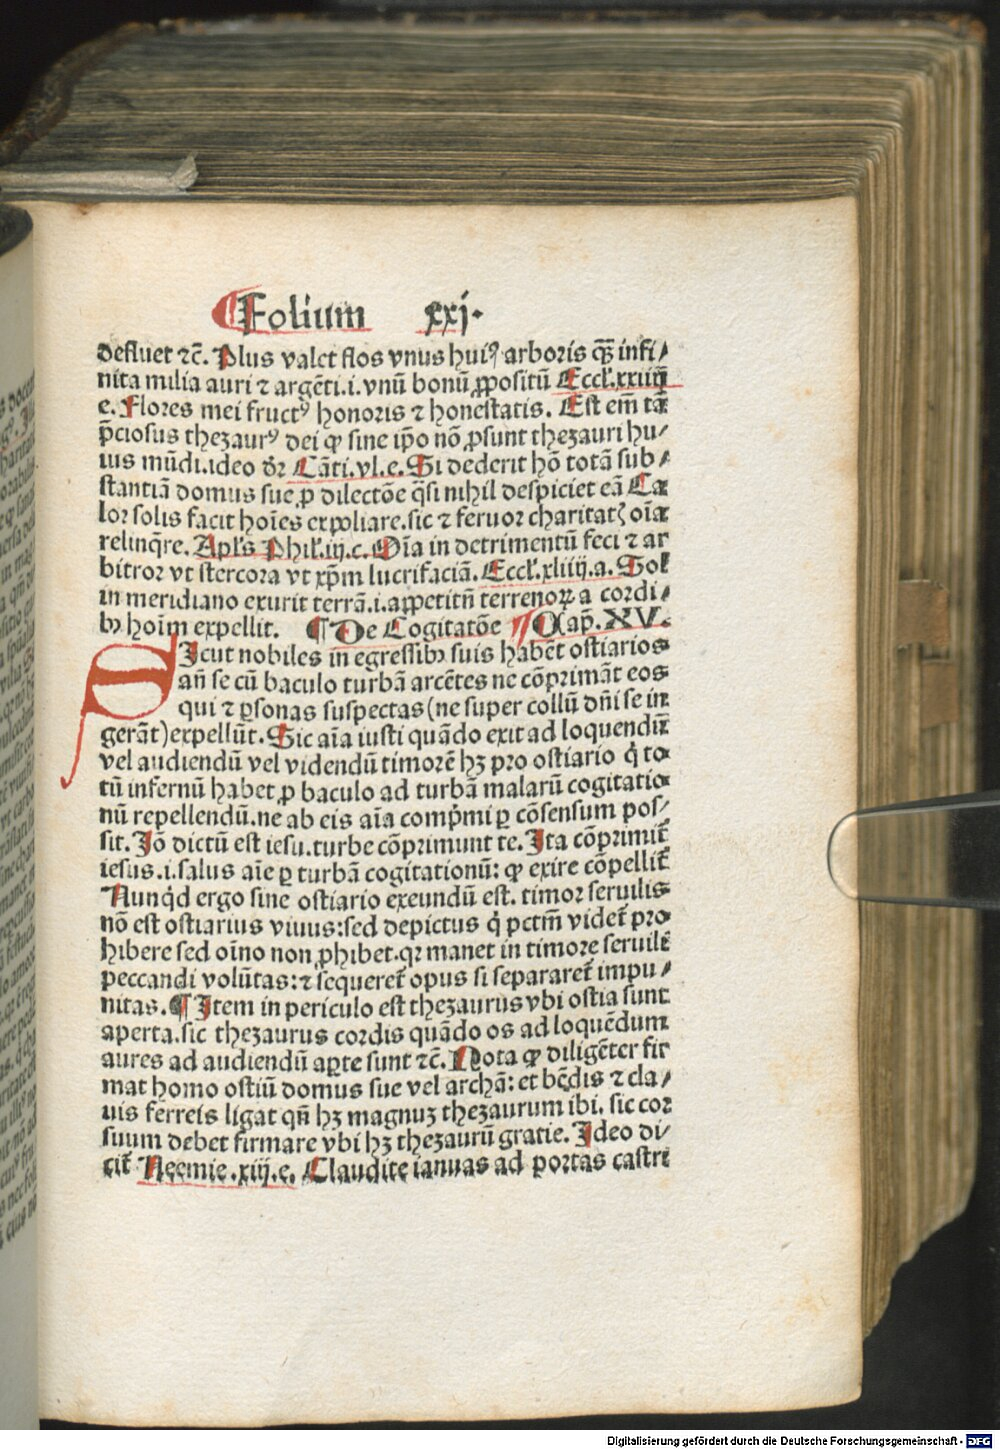 ¶Folium xxj.
defluet ⁊c̄. Plus valet flos vnus huiꝰ arboris qȝ̄ infi/
nita milia auri ⁊ argēti.i.vnū bonū ꝓpositū Eccl̄.xxiiij
e. Flores mei fructꝰ honoris ⁊ honestatis. Est em̄ tā
p̄ciosus thezaurꝰ dei ꝙ sine ip̄o nō ꝓsunt thezauri hu/
ius mūdi.ideo dr̄ Cāti.vl.e. Si dederit hō totā sub/
stantiā domus sue ꝓ dilectōe q̄si nihil despiciet eā Ca
lor solis facit hoīes expoliare.sic ⁊ feruor charitatꝭ oīa
relinq̄re. Apl̄s Phil̄.iij.c. Oīa in detrimentū feci ⁊ ar
bitror vt stercora vt xp̄m lucrifaciā. Eccl̄.xliiij.a. Sol
in meridiano exurit terrā.i.appetitū terrenoꝝ a cordi/
bꝫ hoīm expellit. ¶De Cogitatōe ¶Cap̄. XV.
SIcut nobiles in egressibꝫ suis habēt ostiarios
an̄ se cū baculo turbā arcētes ne cōprimāt eos
qui ⁊ ꝑsonas suspectas(ne super collū dn̄i se in
gerāt)expellūt. Sic aīa iusti quādo exit ad loquendū
vel audiendū vel videndū timorē hꝫ pro ostiario q̇ to
tū infernū habet ꝓ baculo ad turbā malarū cogitatio
nū repellendū.ne ab eis aīa comp̄mi ꝑ cōsensum pos/
sit. Iō dictū est iesu.turbe cōprimunt te. Ita cōprimit̄
iesus.i.salus aīe ꝑ turbā cogitationū: ꝙ exire cōpellit̄
Nunq̇d ergo sine ostiario exeundū est. timor seruilis
nō est ostiarius viuus:sed depictus q̇ pctm̄ videt̄ pro
hibere sed oīno non ꝓhibet.qꝛ manet in timore seruili
peccandi volūtas:⁊ sequeret̄ opus si separaret̄ impu/
nitas. ¶Item in periculo est thezaurus vbi ostia sunt
aperta.sic thezaurus cordis quādo os ad loquēdum
aures ad audiendū aꝑte sunt ⁊c̄. Nota ꝙ diligēter fir
mat homo ostiū domus sue vel archā: et bēdis ⁊ cla/
uis ferreis ligat qn̄ hꝫ magnuꝫ thezaurum ibi. sic cor
suum debet firmare vbi hꝫ thezaurū gratie. Ideo di/
cit̄ Neemie.xiij.e. Claudite ianuas ad portas castri
Digitalisierung gefördert durch die Deutsche Forschungsgemeinschaft - DFG